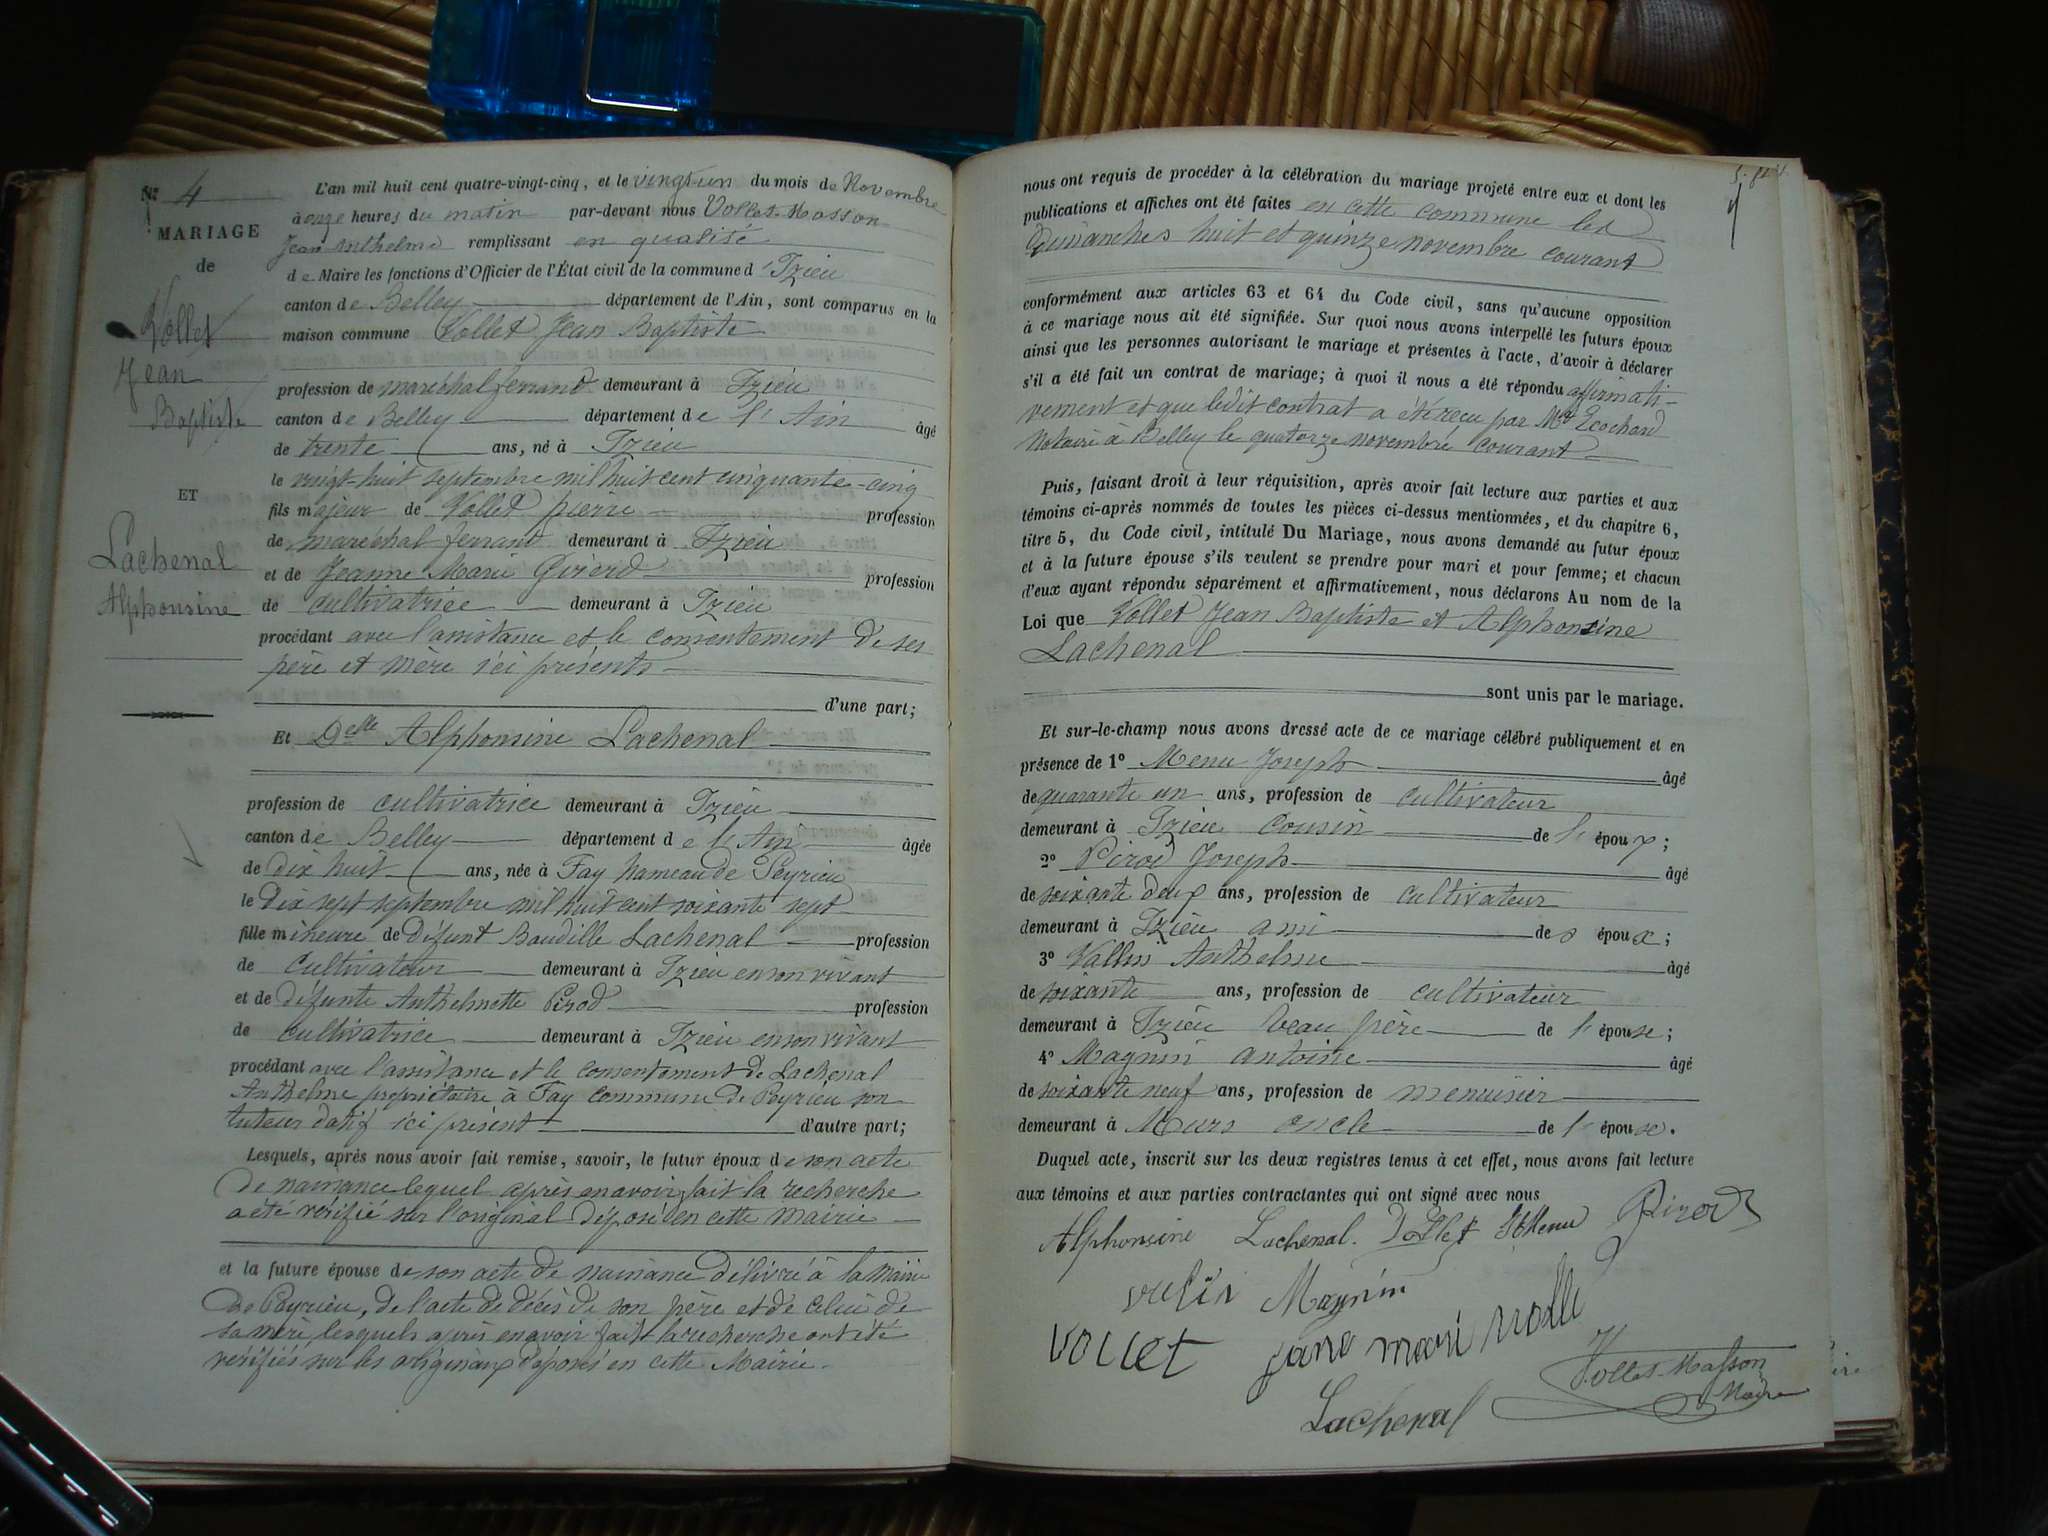 N° 4
MARIAGE
de
Vollet
Jean
Baptiste
ET
Lachenal
Alphonsine
L'an mil huit cent quatre-vingt-cinq, et le vingt-un du mois de Novembre
à onze heures du matin par-devant nous Vollet-Masson
Jean Anthelme remplissant en qualité
de Maire les fonctions d'Officier de l'État civil de la commune d'Izieu
canton de Belley département de l'Ain, sont comparus en la
maison commune Vollet Jean Baptiste
profession de maréchal ferrand demeurant à Izieu
canton de Belley département de l'Ain âgé
de trente ans, né à Izieu
le vingt-huit septembre mil huit cent cinquante-cinq
fils majeur de Vollet pierre profession
de maréchal ferrant demeurant à Izieu
et de Jeanne Marie Girerd profession
de cultivatrice demeurant à Izieu
procédant avec l'assistance et le consentement de ses
père et mère ici présents
d'une part;
Et Delle Alphonsine Lachenal
profession de cultivatrice demeurant à Izieu
canton de Belley département de l'Ain âgée
de dix huit ans, née à Fay hameau de Peyrieu
le dix sept septembre mil huit cent soixante sept
fille mineure de défunt Baudille Lachenal profession
de cultivateur demeurant à Izieu en son vivant
et de défunte Anthelmette Pirod profession
de cultivatrice demeurant à Izieu en son vivant
procédant avec l'assistance et le consentement de Lachenal
Anthelme propriétaire à Fay commune de Peyrieu son
tuteur datif ici présent d'autre part;
Lesquels, après nous avoir fait remise, savoir, le futur époux de son acte
de naissance lequel après en avoir fait la recherche
a été vérifié sur l'original déposé en cette mairie
et la future épouse de son acte de naissance délivré à la mairie
de Peyrieu, de l'acte de décès de son père et de celui de
sa mère lesquels après en avoir fait la recherche ont été
vérifiés sur les originaux déposés en cette Mairie.
nous ont requis de procéder à la célébration du mariage projeté entre eux et dont les
publications et affiches ont été faites en cette commune les
dimanches huit et quinze novembre courant
conformément aux articles 63 et 64 du Code civil, sans qu'aucune opposition
à ce mariage nous ait été signifiée. Sur quoi nous avons interpellé les futurs époux
ainsi que les personnes autorisant le mariage et présentes à l'acte, d'avoir à déclarer
s'il a été fait un contrat de mariage; à quoi il nous a été répondu affirmati-
vement et que ledit contrat a été recu par Me Ecochard
notaire à Belley le quatorze novembre courant
Puis, faisant droit à leur réquisition, après avoir fait lecture aux parties et aux
témoins ci-après nommés de toutes les pièces ci-dessus mentionnées, et du chapitre 6,
titre 5, du Code civil, intitulé Du Mariage, nous avons demandé au futur époux
et à la future épouse s'ils veulent se prendre pour mari et pour femme; et chacun
d'eux ayant répondu séparément et affirmativement, nous déclarons Au nom de la
Loi que Vollet Jean Baptiste et Alphonsine
Lachenal
sont unis par le mariage.
Et sur-le-champ nous avons dressé acte de ce mariage célébré publiquement et en
présence de 1° Menu Joseph âgé
de quarante un ans, profession de cultivateur
demeurant à Izieu cousin de l'époux;
2° Pirod Joseph âgé
de soixante deux ans, profession de cultivateur
demeurant à Izieu ami des époux;
3° Vallin Anthelme âgé
de soixante ans, profession de cultivateur
demeurant à Izieu beau père de l'épouse;
4° Magnin antoine âgé
de soixante neuf ans, profession de menuisier
demeurant à Murs oncle de l'épouse.
Duquel acte, inscrit sur les deux registres tenus à cet effet, nous avons fait lecture
aux témoins et aux parties contractantes qui ont signé avec nous
Alphonsine Lachenal. Vollet Menu Pirod
Magnin
VOLLET jane mari
Vollet-Masson
Maire
Lachenal